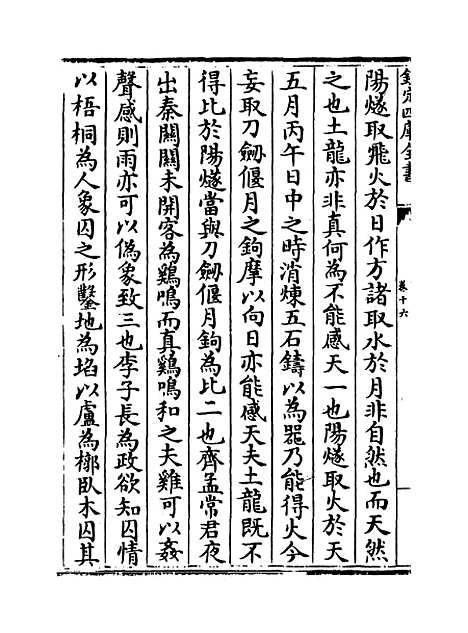 欽定四庫全書
卷十六
陽燧取飛火於日作方諸取水於月非自然也而天然
之也土龍亦非真何為不能感天一也陽燧取火於天
五月丙午日中之時消煉五石鑄以為噐乃能得火今
妄取刀劒偃月之鉤摩以向日亦能感天夫土龍既不
得比於陽燧當與刀劒偃月鉤為比二也齊孟常君夜
出秦關關未開客為鷄鳴而真鷄鳴和之夫雞可以姦
聲感則雨亦可以偽象致三也李子長為政欲知囚情
以梧桐為人象囚之形鑿地為埳以盧為槨臥木囚其